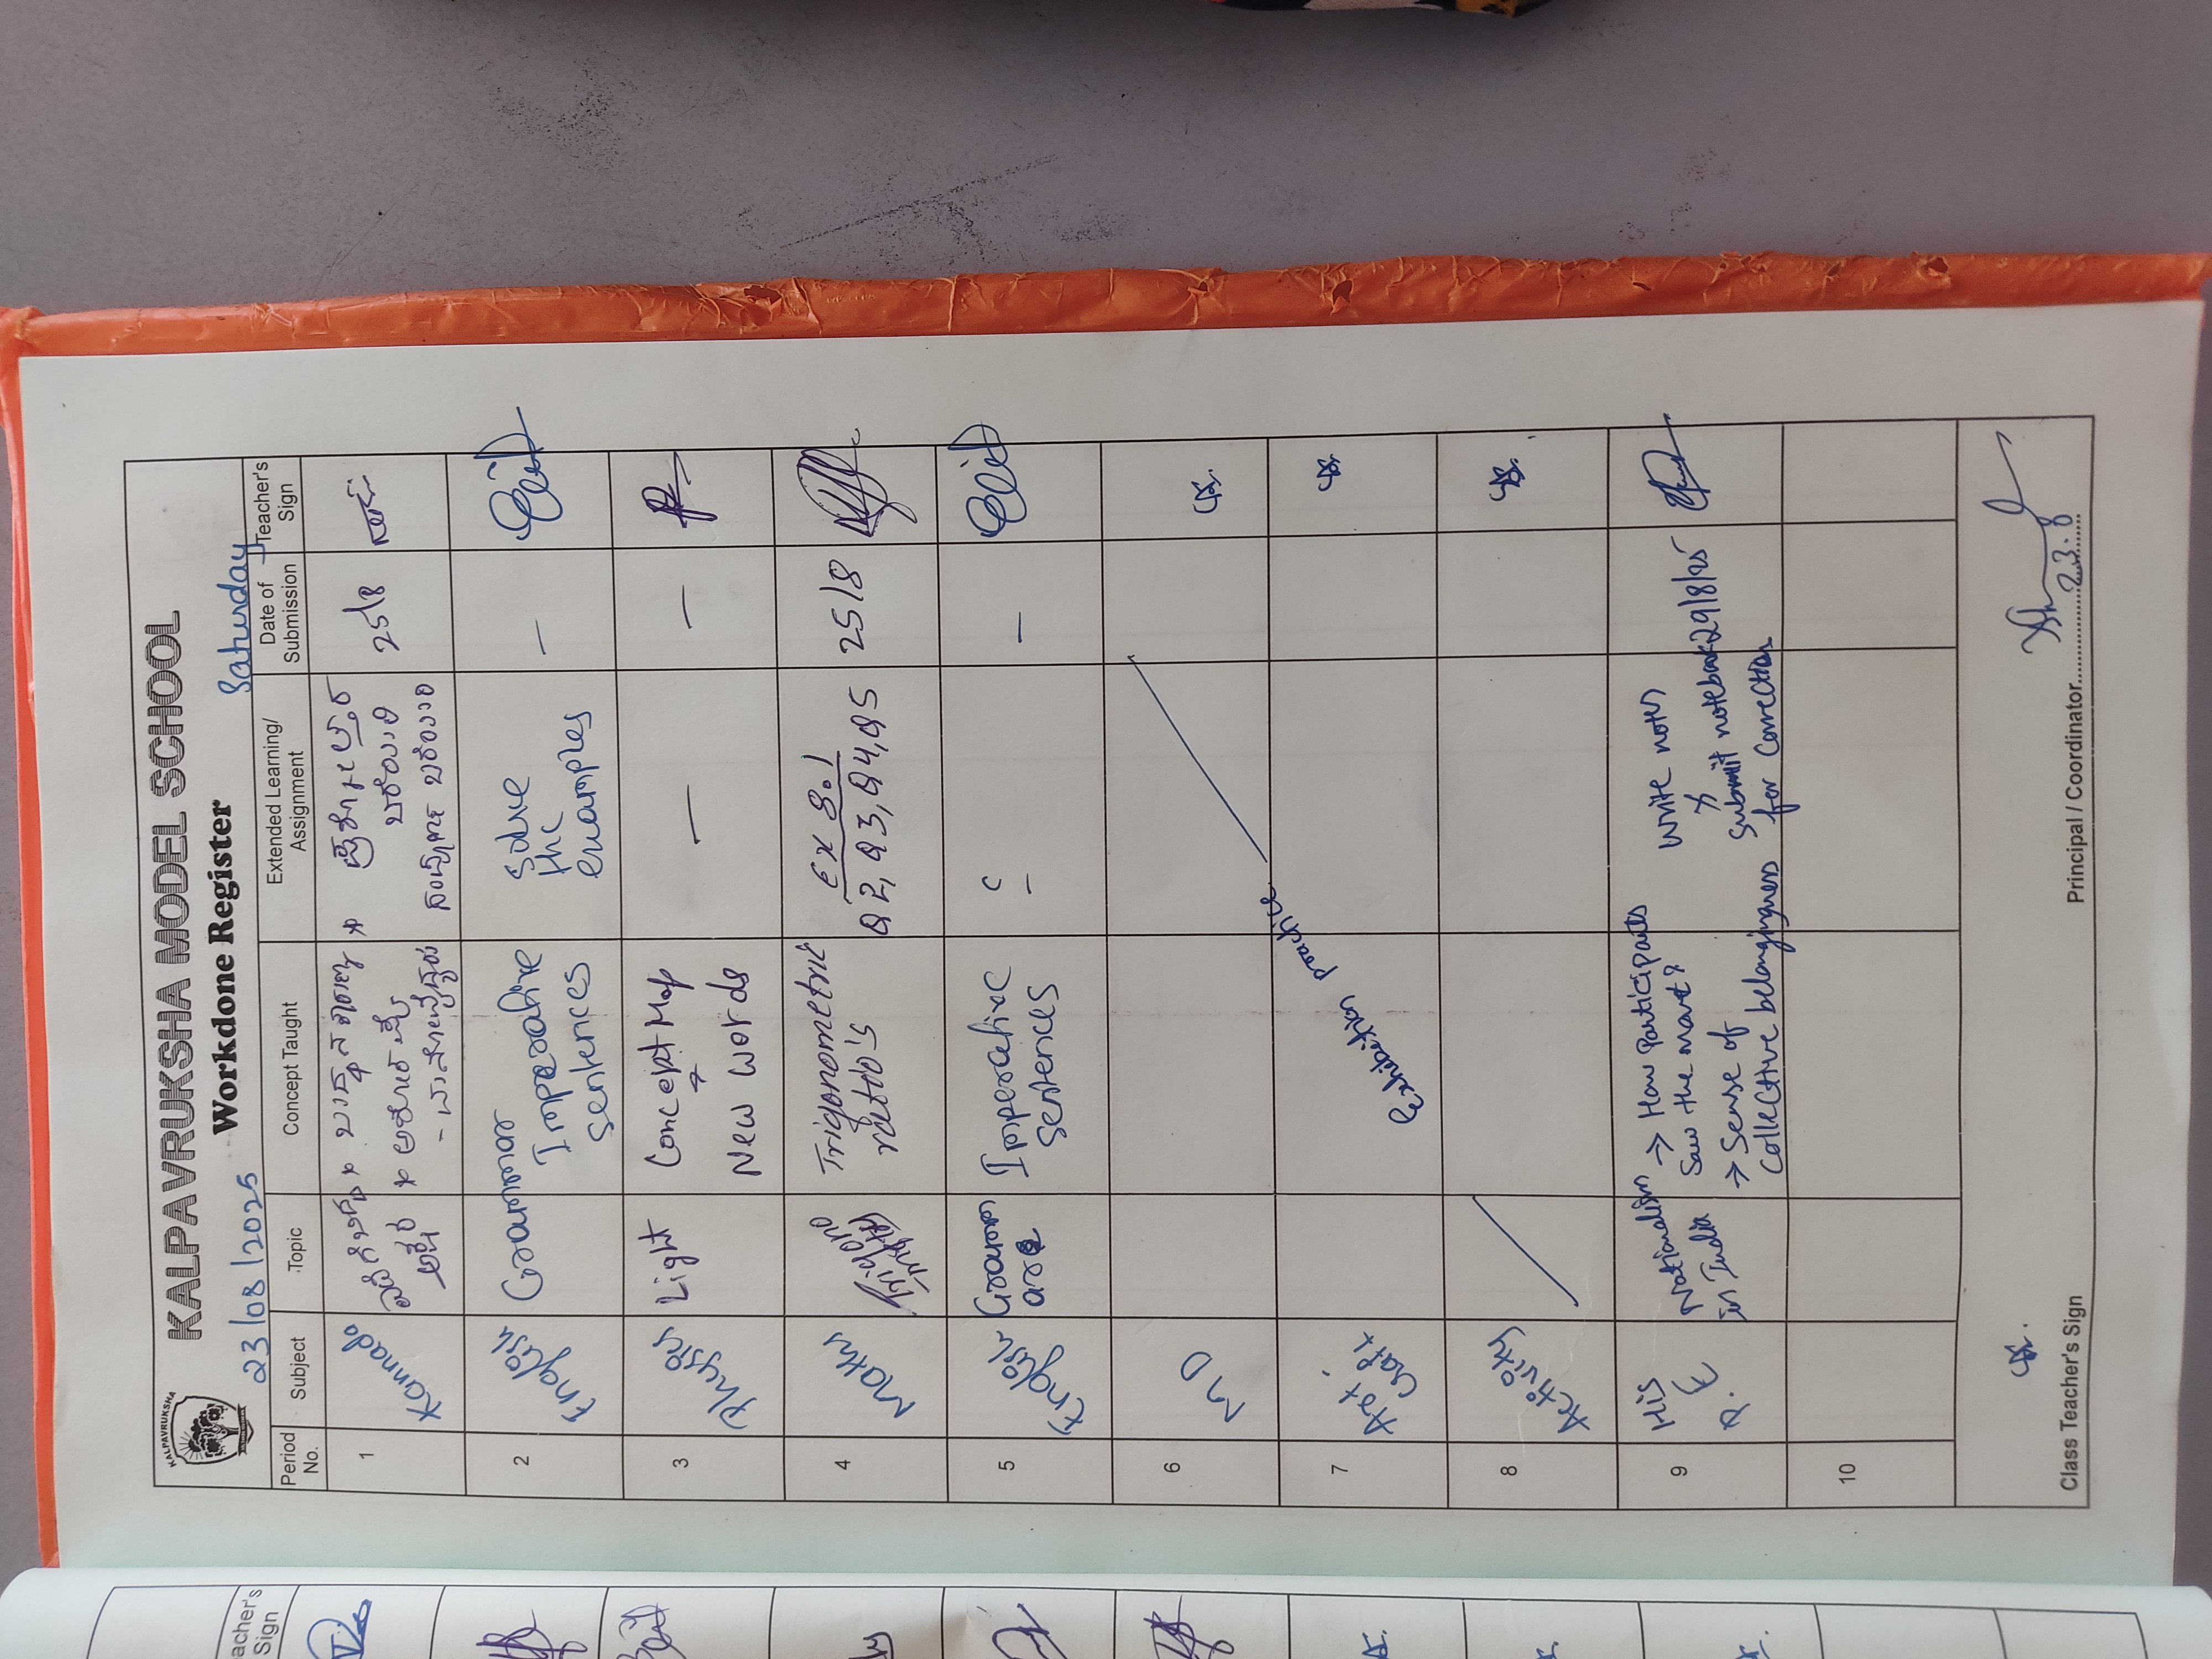 KALPAVRUKSHA
KALPAVRUKSHA MODEL SCHOOL
Workdone Register
23/08/2025
Saturday
Period No.
Subject
Topic
Concept Taught
Extended Learning/ Assignment
Date of Submission
Teacher's Sign
1
Kannada
25/8
2
English
Grammar
Imperative
Sentences
Solve
the
examples
—
3
Physics
Light
Concept Map
New words
—
—
4
Maths
Trigono
Trigonometric
ratio's
Ex 8.1
Q2, Q3, Q4, Q5
25/8
5
English
Gramm
ar
Imperative
Sentences
—
—
6
MD
7
Art
Craft
Exhibition practice
8
Activity
9
His
P. E
Nationalism
in India
→ How Participants
Saw the movt?
→ Sense of
Collective belongingness
Write notes
Submit notebook
for Correction
29/8/25
10
Class Teacher's Sign
Principal / Coordinator
23.8
acher's
Sign